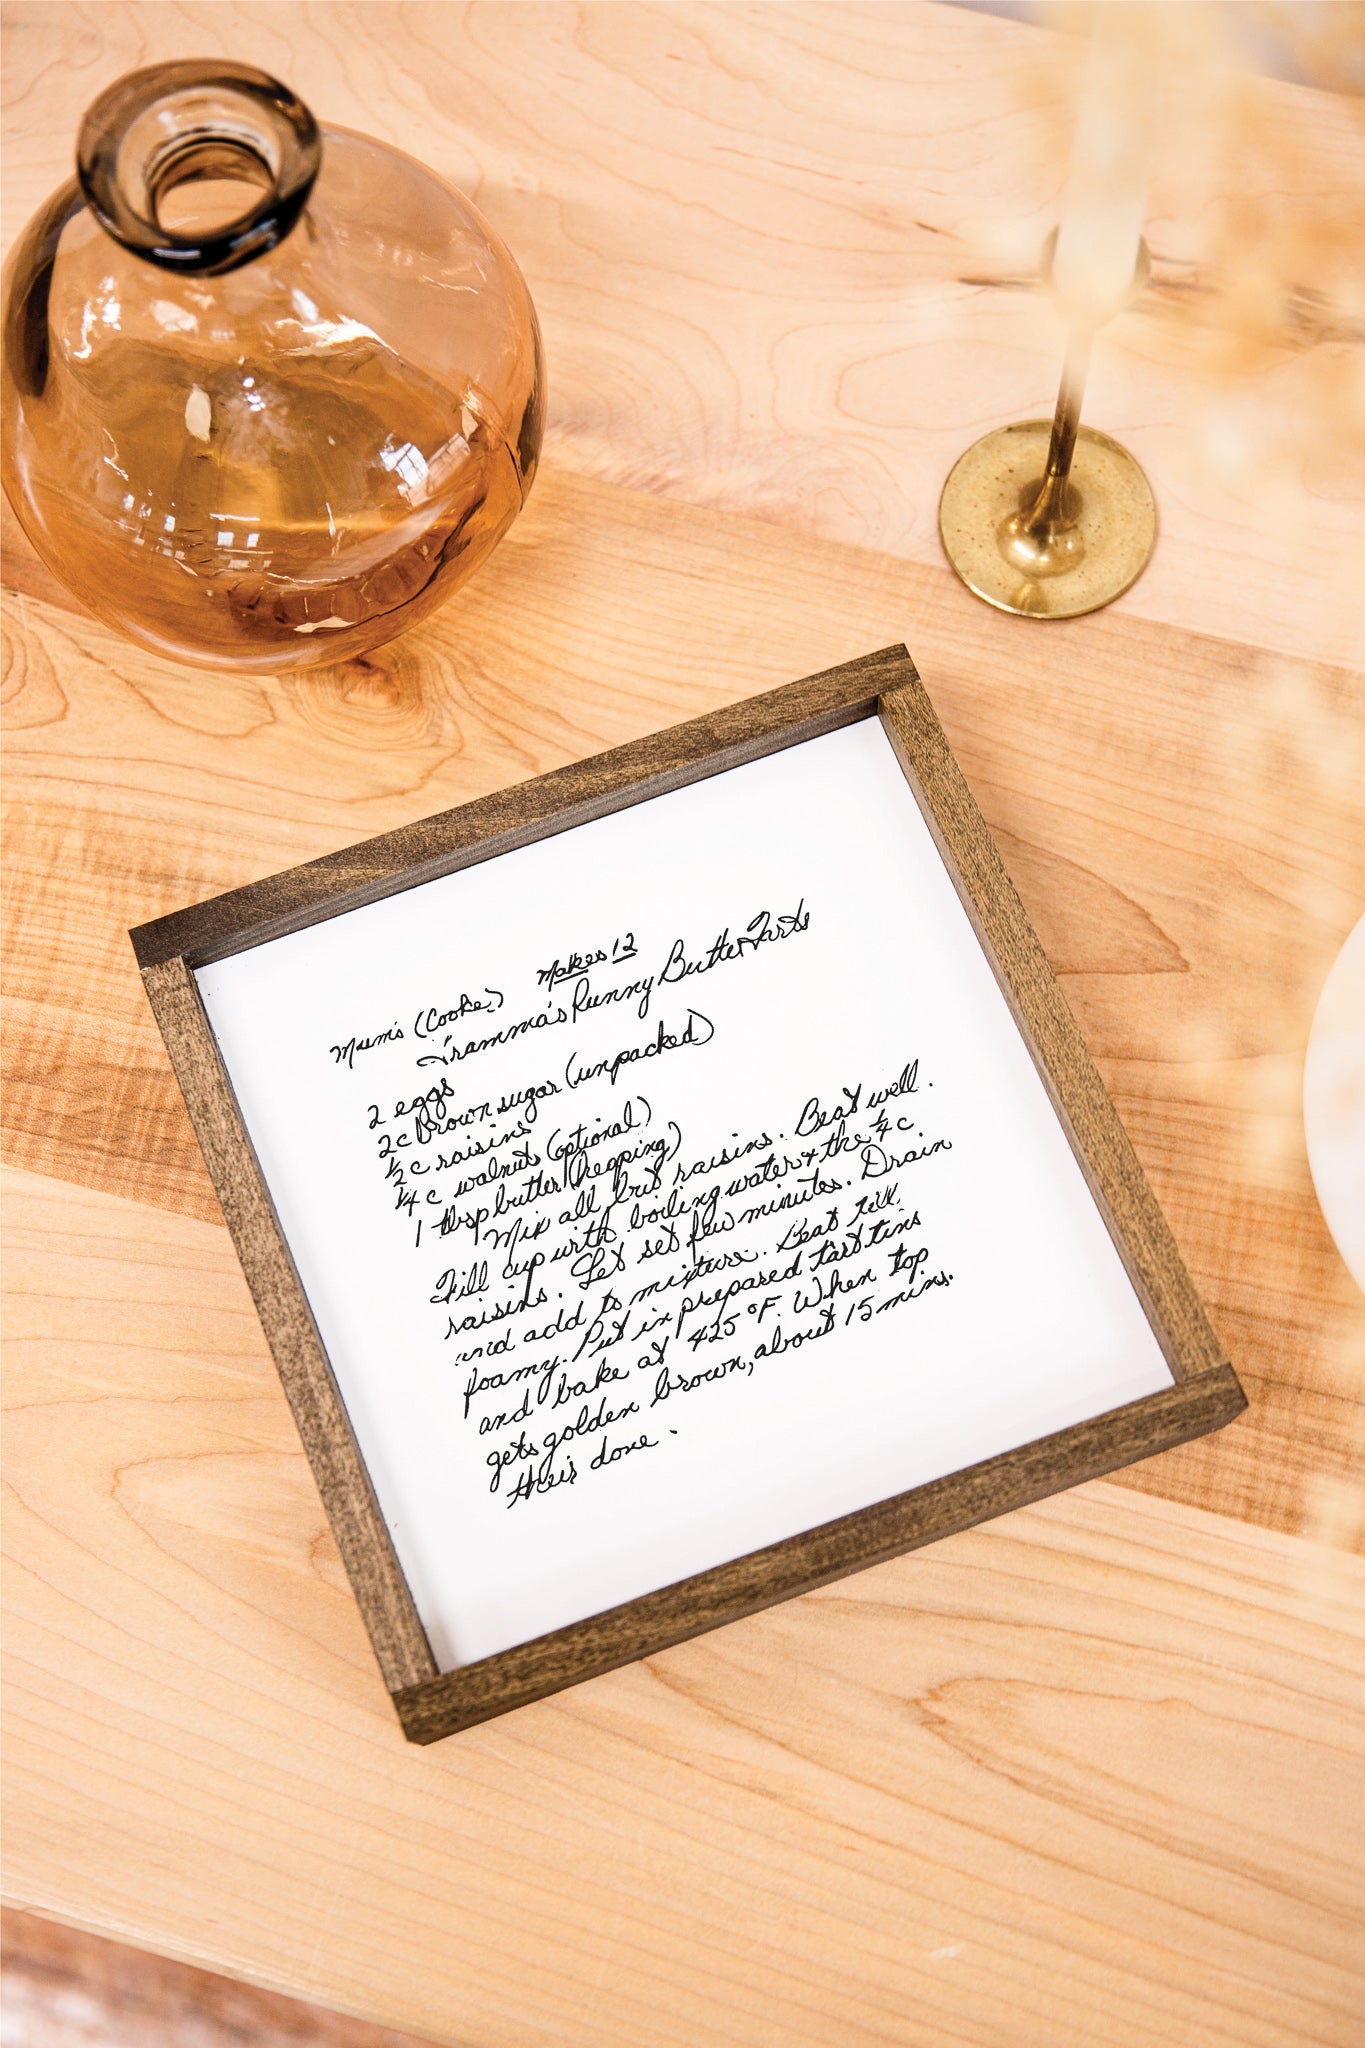 Makes 12
Mum's (Cooke)
"Gramma's Runny Butter Tarts
2 eggs
2c brown sugar (unpacked)
½ c raisins
¼ c walnuts (optional)
1 tbsp butter (hepping)
Mix all but raisins. Beat well.
Fill cup with boiling water & the ¼ c
raisins. Let set few minutes. Drain
and add to mixture. Beat till
foamy. Put in prepared tart tins
and bake at 425°F. When top
gets golden brown, about 15 mins.
their done.